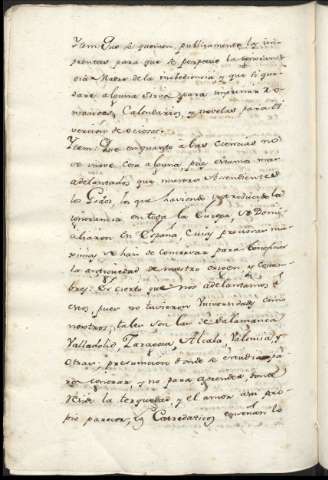 Ytem: Que se quemen publicamente las im-
prentas para que se perpetue la
Madre de la inobediencia, y que si que-
dare alguna sirva para imprimir Ro-
mances, Calendarios, y novelas para di-
version de ociosos.
Ytem: Que en quanto a las ciencias no
se inove cosa alguna, pues estamos mas
adelantados que nuestros Ascendientes
los Godos, los que haviendo introducido la
ignorancia en toda la Europa, se domi-
ciliaron en España, cuias preciosas ma-
ximas se han de conservar para
la antiguedad de nuestro origen y costum-
bres: Es cierto que nos adelantamos a
ellos pues no tuvieron Universidades como
nosotros, tales son las de Salamanca,
Valladolid, Zaragoza, Alcala, Valencia y
otras, presuncion donde se estudia pa-
ra ignorar, y no para aprender donde
reside la terquedad, y el amor a su pro-
pio parecer, los Catedraticos enseñan lo